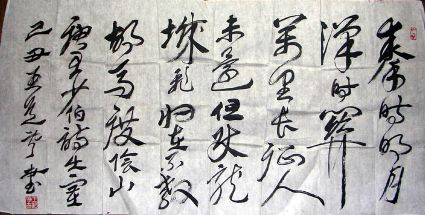 秦時明月
漢時關
萬里長征人
未還但使龍
城飛將在不教
胡馬度陰山
唐王少伯詩出塞
己丑